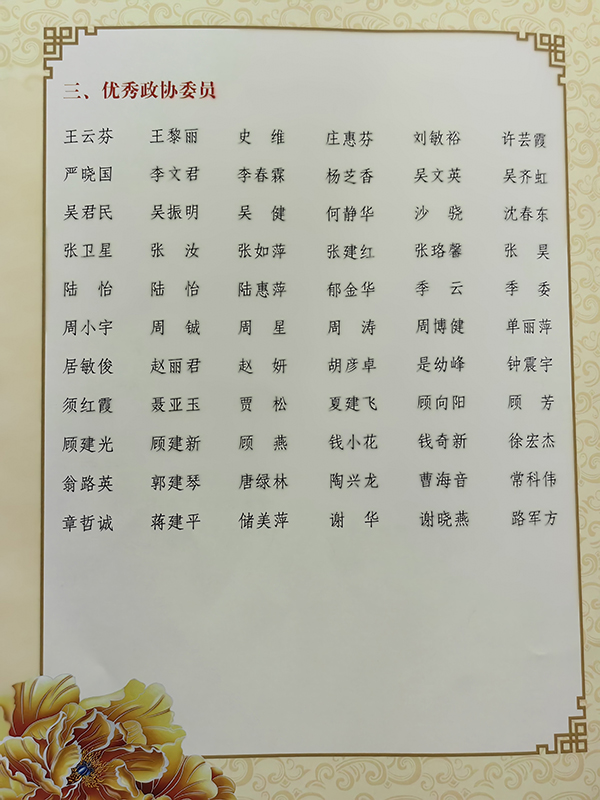 三、优秀政协委员
王云芬 王黎丽 史 维 庄惠芬 刘敏裕 许芸霞
严晓国 李文君 李春霖 杨芝香 吴文英 吴齐虹
吴君民 吴振明 吴 健 何静华 沙 骁 沈春东
张卫星 张 汝 张如萍 张建红 张珞馨 张 昊
陆 怡 陆 怡 陆惠萍 郁金华 季 云 季 委
周小宇 周 铖 周 星 周 涛 周博健 单丽萍
居敏俊 赵丽君 赵 妍 胡彦卓 是幼峰 钟震宇
须红霞 聂亚玉 贾 松 夏建飞 顾向阳 顾 芳
顾建光 顾建新 顾 燕 钱小花 钱奇新 徐宏杰
翁路英 郭建琴 唐绿林 陶兴龙 曹海音 常科伟
章哲诚 蒋建平 储美萍 谢 华 谢晓燕 路军方